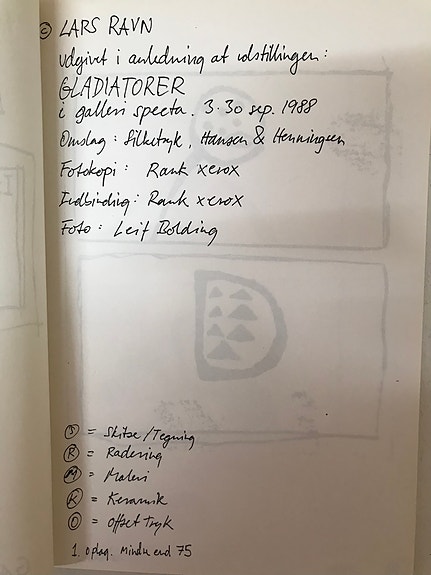 © LARS RAVN
udgivet i anledning af udstillingen:
GLADIATORER
i galleri specta. 3-30 sep. 1988
Omslag: Silketryk, Hansen & Henningsen
Fotokopi: Rank xerox
Indbinding: Rank xerox
Foto: Leif Bolding
Ⓢ = Skitse/Tegning
Ⓡ = Radering
Ⓜ = Maleri
Ⓚ = Keramik
Ⓞ = offset Tryk
1. oplag. Mindre end 75